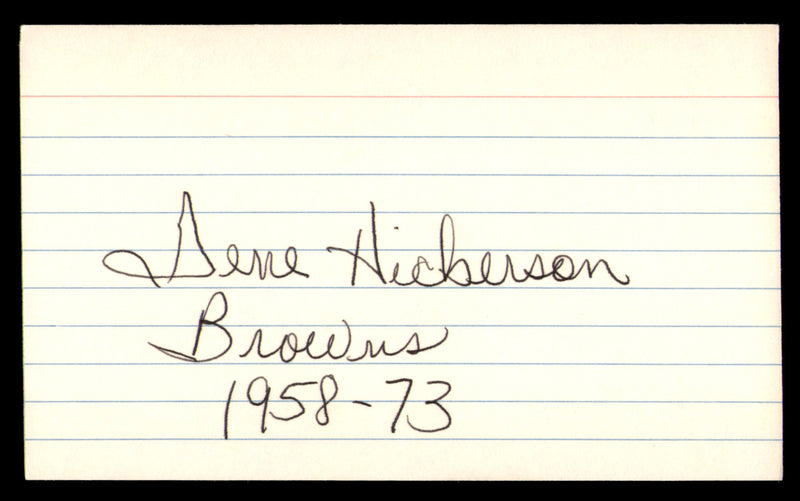 Gene Hickerson
Browns
1958-73